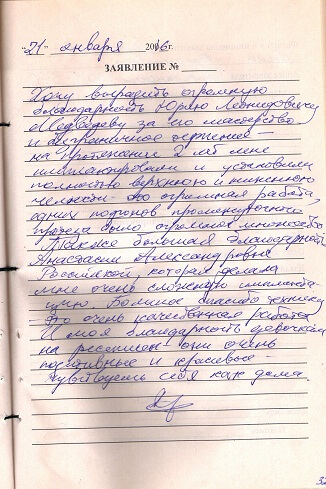 "21" января 2016г.
ЗАЯВЛЕНИЕ №
Хочу выразить огромную
благодарность Юрию Леонидовичу
Медведеву за его мастерство
и безграничное терпение -
на протяжение 2 лет мне
имплантировали и установили
полностью верхнюю и нижнюю
челюсти. Это огромная работа,
одних подгонов промежуточного
протеза было огромное множество
Также большая благодарность
Анастасии Александровне
Российской, которая делала
мне очень сложную имплантацию
цию. Большое спасибо технику
Это очень качественная работа
И моя благодарность девочкам
на ресепшен - они очень
позитивные и красивые -
чувствуешь себя как дома.
32